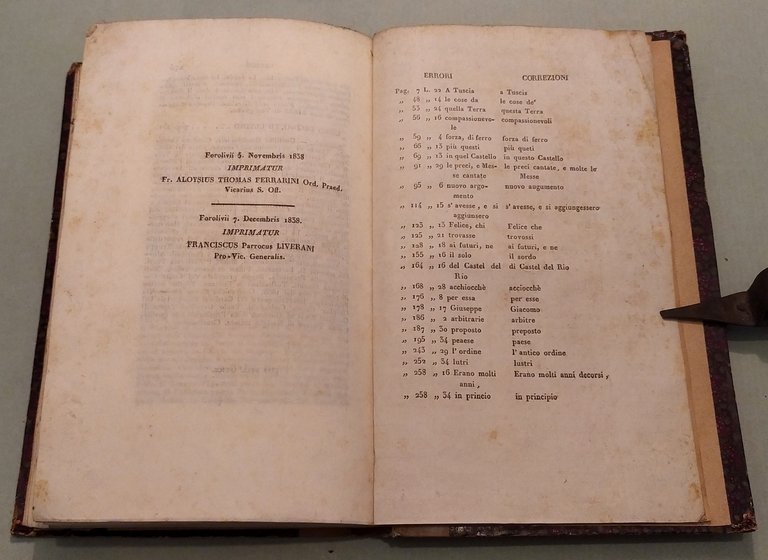 Forolivii 5. Novembris 1838
IMPRIMATUR
Fr. ALOYSIUS THOMAS FERRARINI Ord. Praed.
Vicarius S. Off.
Forolivii 7. Decembris 1838.
IMPRIMATUR
FRANCISCUS Parrocus LIVERANI
Pro-Vic. Generalis.
ERRORI CORREZIONI
Pag. 7 L. 22 A Tuscia a Tuscia
„ 48 „ 14 le cose da le cose de'
„ 53 „ 24 quella Terra questa Terra
„ 56 „ 16 compassionevo- compassionevoli
le
„ 59 „ 4 forza, di ferro forza di ferro
„ 66 „ 13 più questi più queti
„ 69 „ 13 in quel Castello in questo Castello
„ 91 „ 29 le preci, e Mes- le preci cantate, e molte le
se cantate Messe
„ 95 „ 6 nuovo argo- nuovo augumento
mento
„ 114 „ 15 s' avesse, e si s' avesse, e si aggiungessero
aggiunsero
„ 123 „ 13 Felice, chi Felice che
„ 125 „ 21 trovasse trovossi
„ 128 „ 18 ai futuri, ne ai futuri, e ne
„ 155 „ 16 il solo il sordo
„ 164 „ 16 del Castel del di Castel del Rio
Rio
„ 168 „ 28 acchiocchè acciocchè
„ 176 „ 8 per essa per esse
„ 178 „ 17 Giuseppe Giacomo
„ 186 „ 2 arbitrarie arbitre
„ 187 „ 30 proposto preposto
„ 195 „ 34 peaese paese
„ 243 „ 29 l' ordine l' antico ordine
„ 252 „ 34 lutri lustri
„ 258 „ 16 Erano molti Erano molti anni decorsi,
anni,
„ 258 „ 34 in princio in principio